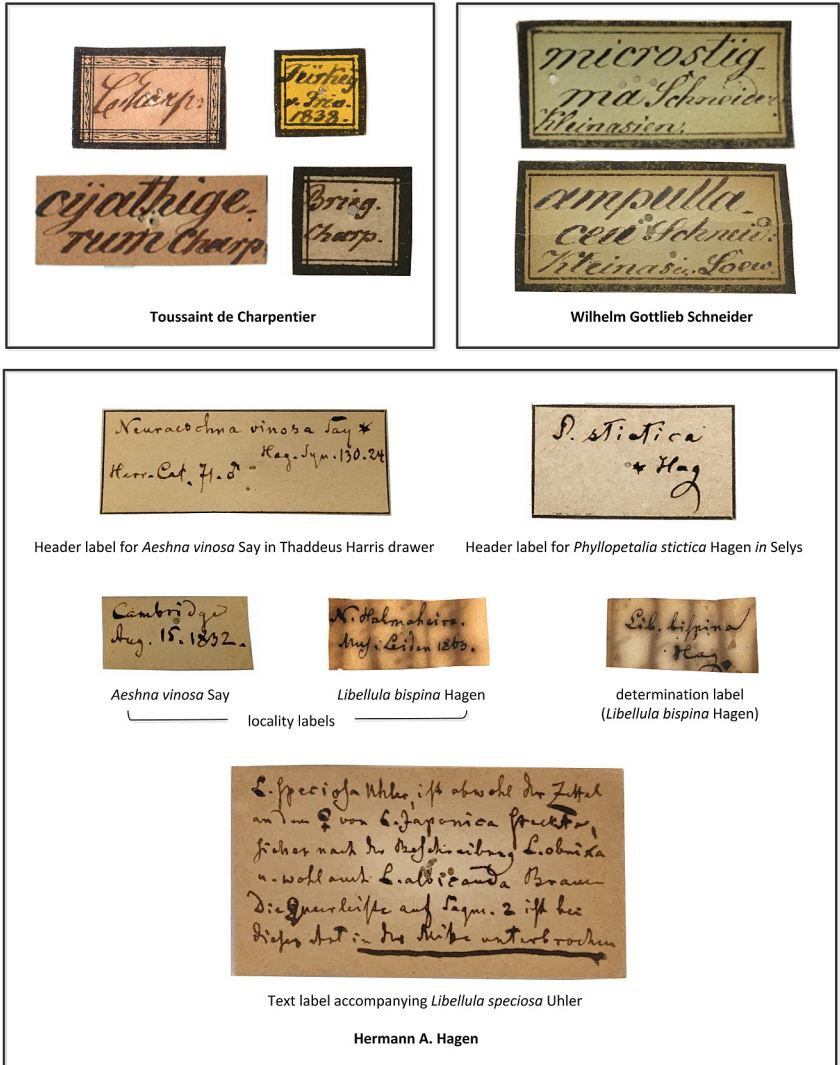 Charp.
Türkey
v. Friv.
1838.
cÿathige-
rum Charp.
Brieg.
Charp.
Toussaint de Charpentier
microstig-
ma Schneider.
Kleinasien.
ampulla-
cea Schneid.
Kleinasi. Loew.
Wilhelm Gottlieb Schneider
Neuraeschna vinosa Say *
Hag. Syn. 130. 24
Harr. Cat. 71. ♂
P. stictica
* Hag
Header label for Aeshna vinosa Say in Thaddeus Harris drawer
Header label for Phyllopetalia stictica Hagen in Selys
Cambridge
Aug. 15. 1832.
N. Halmaheira.
Mus. Leiden 1863.
Lib. bispina
Hag.
Aeshna vinosa Say
Libellula bispina Hagen
locality labels
determination label
(Libellula bispina Hagen)
L. speciosa Uhler, ist obwohl der Zettel
an dem ♀ von L. Japonica steckte,
sicher nach der Beschreibung L.
u. wohl auch L. albicauda Brauer
Die Querleiste auf Segm. 2 ist bei
dieser Art in der Mitte unterbrochen
Text label accompanying Libellula speciosa Uhler
Hermann A. Hagen